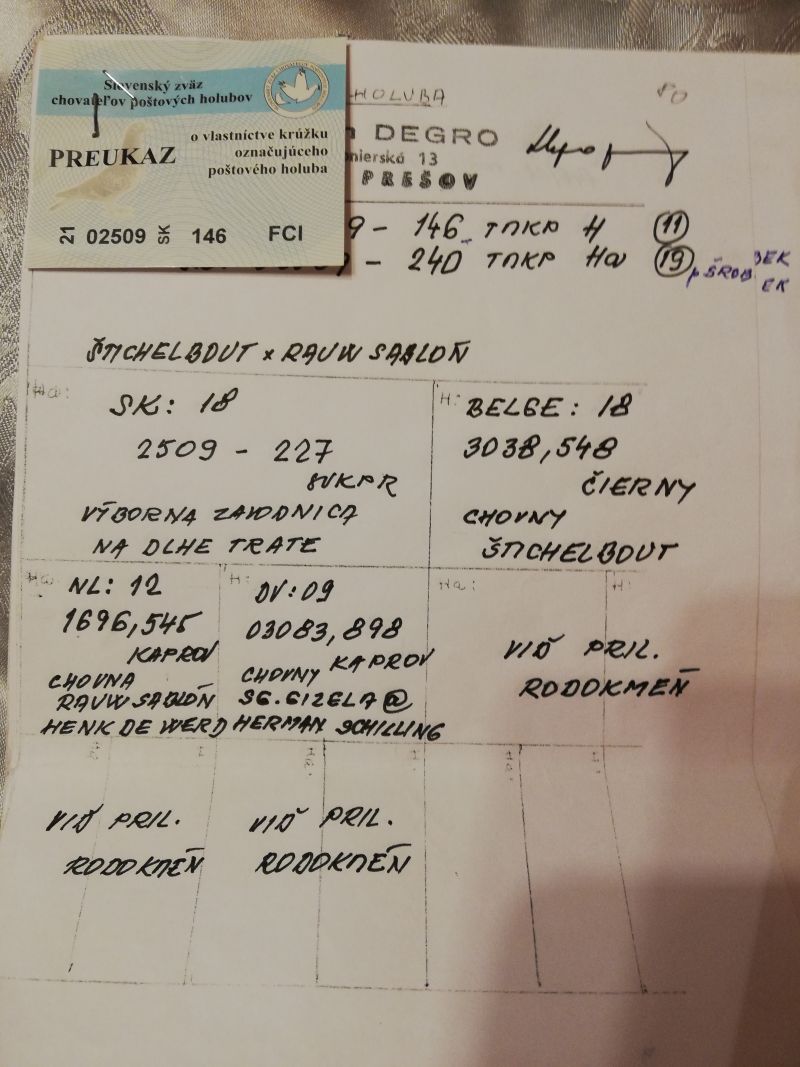 Slovenský zväz
chovateľov poštových holubov
PREUKAZ
o vlastníctve krúžku
označujúceho
poštového holuba
21 02509 SK 146 FCI
HOLUBA
DEGRO
nierská 13
PREŠOV
9 - 146 TMKP H 11
- 240 TMKP Ha 19
ŠTICHELBOUT x RAUW SABLOŇ
Ha:
SK: 18
2509 - 227
SVKPR
VÝBORNA ZAVODNICA
NA DLHE TRATE
H:
BELGE: 18
3038,548
ČIERNY
CHOVNY
ŠTICHELBOUT
Ha
NL: 12
1696,545
KAPROV
CHOVNA
RAUW SABLOŇ
HENK DE WERD
H:
DV: 09
03083,898
CHOVNY KAPROV
SG. GIZELA @
HERMAN SCHILLING
Ha: H:
VIĎ PRIL.
RODOKMEŇ
VIĎ PRIL.
RODOKMEŇ
VIĎ PRIL.
RODOKMEŇ